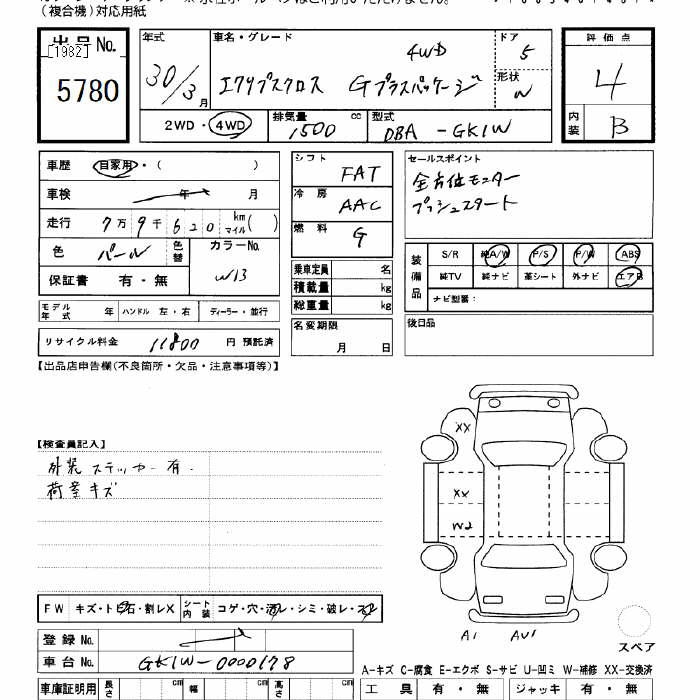 (複合機)対応用紙
出品No.
[1982]
5780
年式
30/3月
車名・グレード
4WD
エクリプスクロス Gプラスパッケージ
ドア
5
形状
W
2WD・4WD
排気量
1500 cc
型式
DBA-GK1W
評価点
4
内装
B
車歴 自家用・( )
車検 年 月
走行 7万9千620 km マイル( )
色 パール 色替
カラーNo.
W13
保証書 有・無
モデル年式 年 ハンドル 左・右 ディーラー・並行
リサイクル料金 11800 円 預託済
シフト FAT
冷房 AAC
燃料 G
乗車定員 名
積載量 kg
総重量 kg
名変期限
月 日
セールスポイント
全方位モニター
プッシュスタート
装備品
S/R 純A/W P/S P/W ABS
純TV 純ナビ 革シート 外ナビ エアB
ナビ型番:
後日品
【出品店申告欄(不良箇所・欠品・注意事項等)】
【検査員記入】
外装ステッカー有.
荷室キズ
XX
XX
W2
A1 AU1
スペア
FW キズ・トビ石・割レX
シート内装 コゲ・穴・汚レ・シミ・破レ・スレ
登録No.
車台No. GK1W-0000178
A-キズ C-腐食 E-エクボ S-サビ U-凹ミ W-補修 XX-交換済
車庫証明用 長さ cm 幅 cm 高さ cm
工具 有・無 ジャッキ 有・無